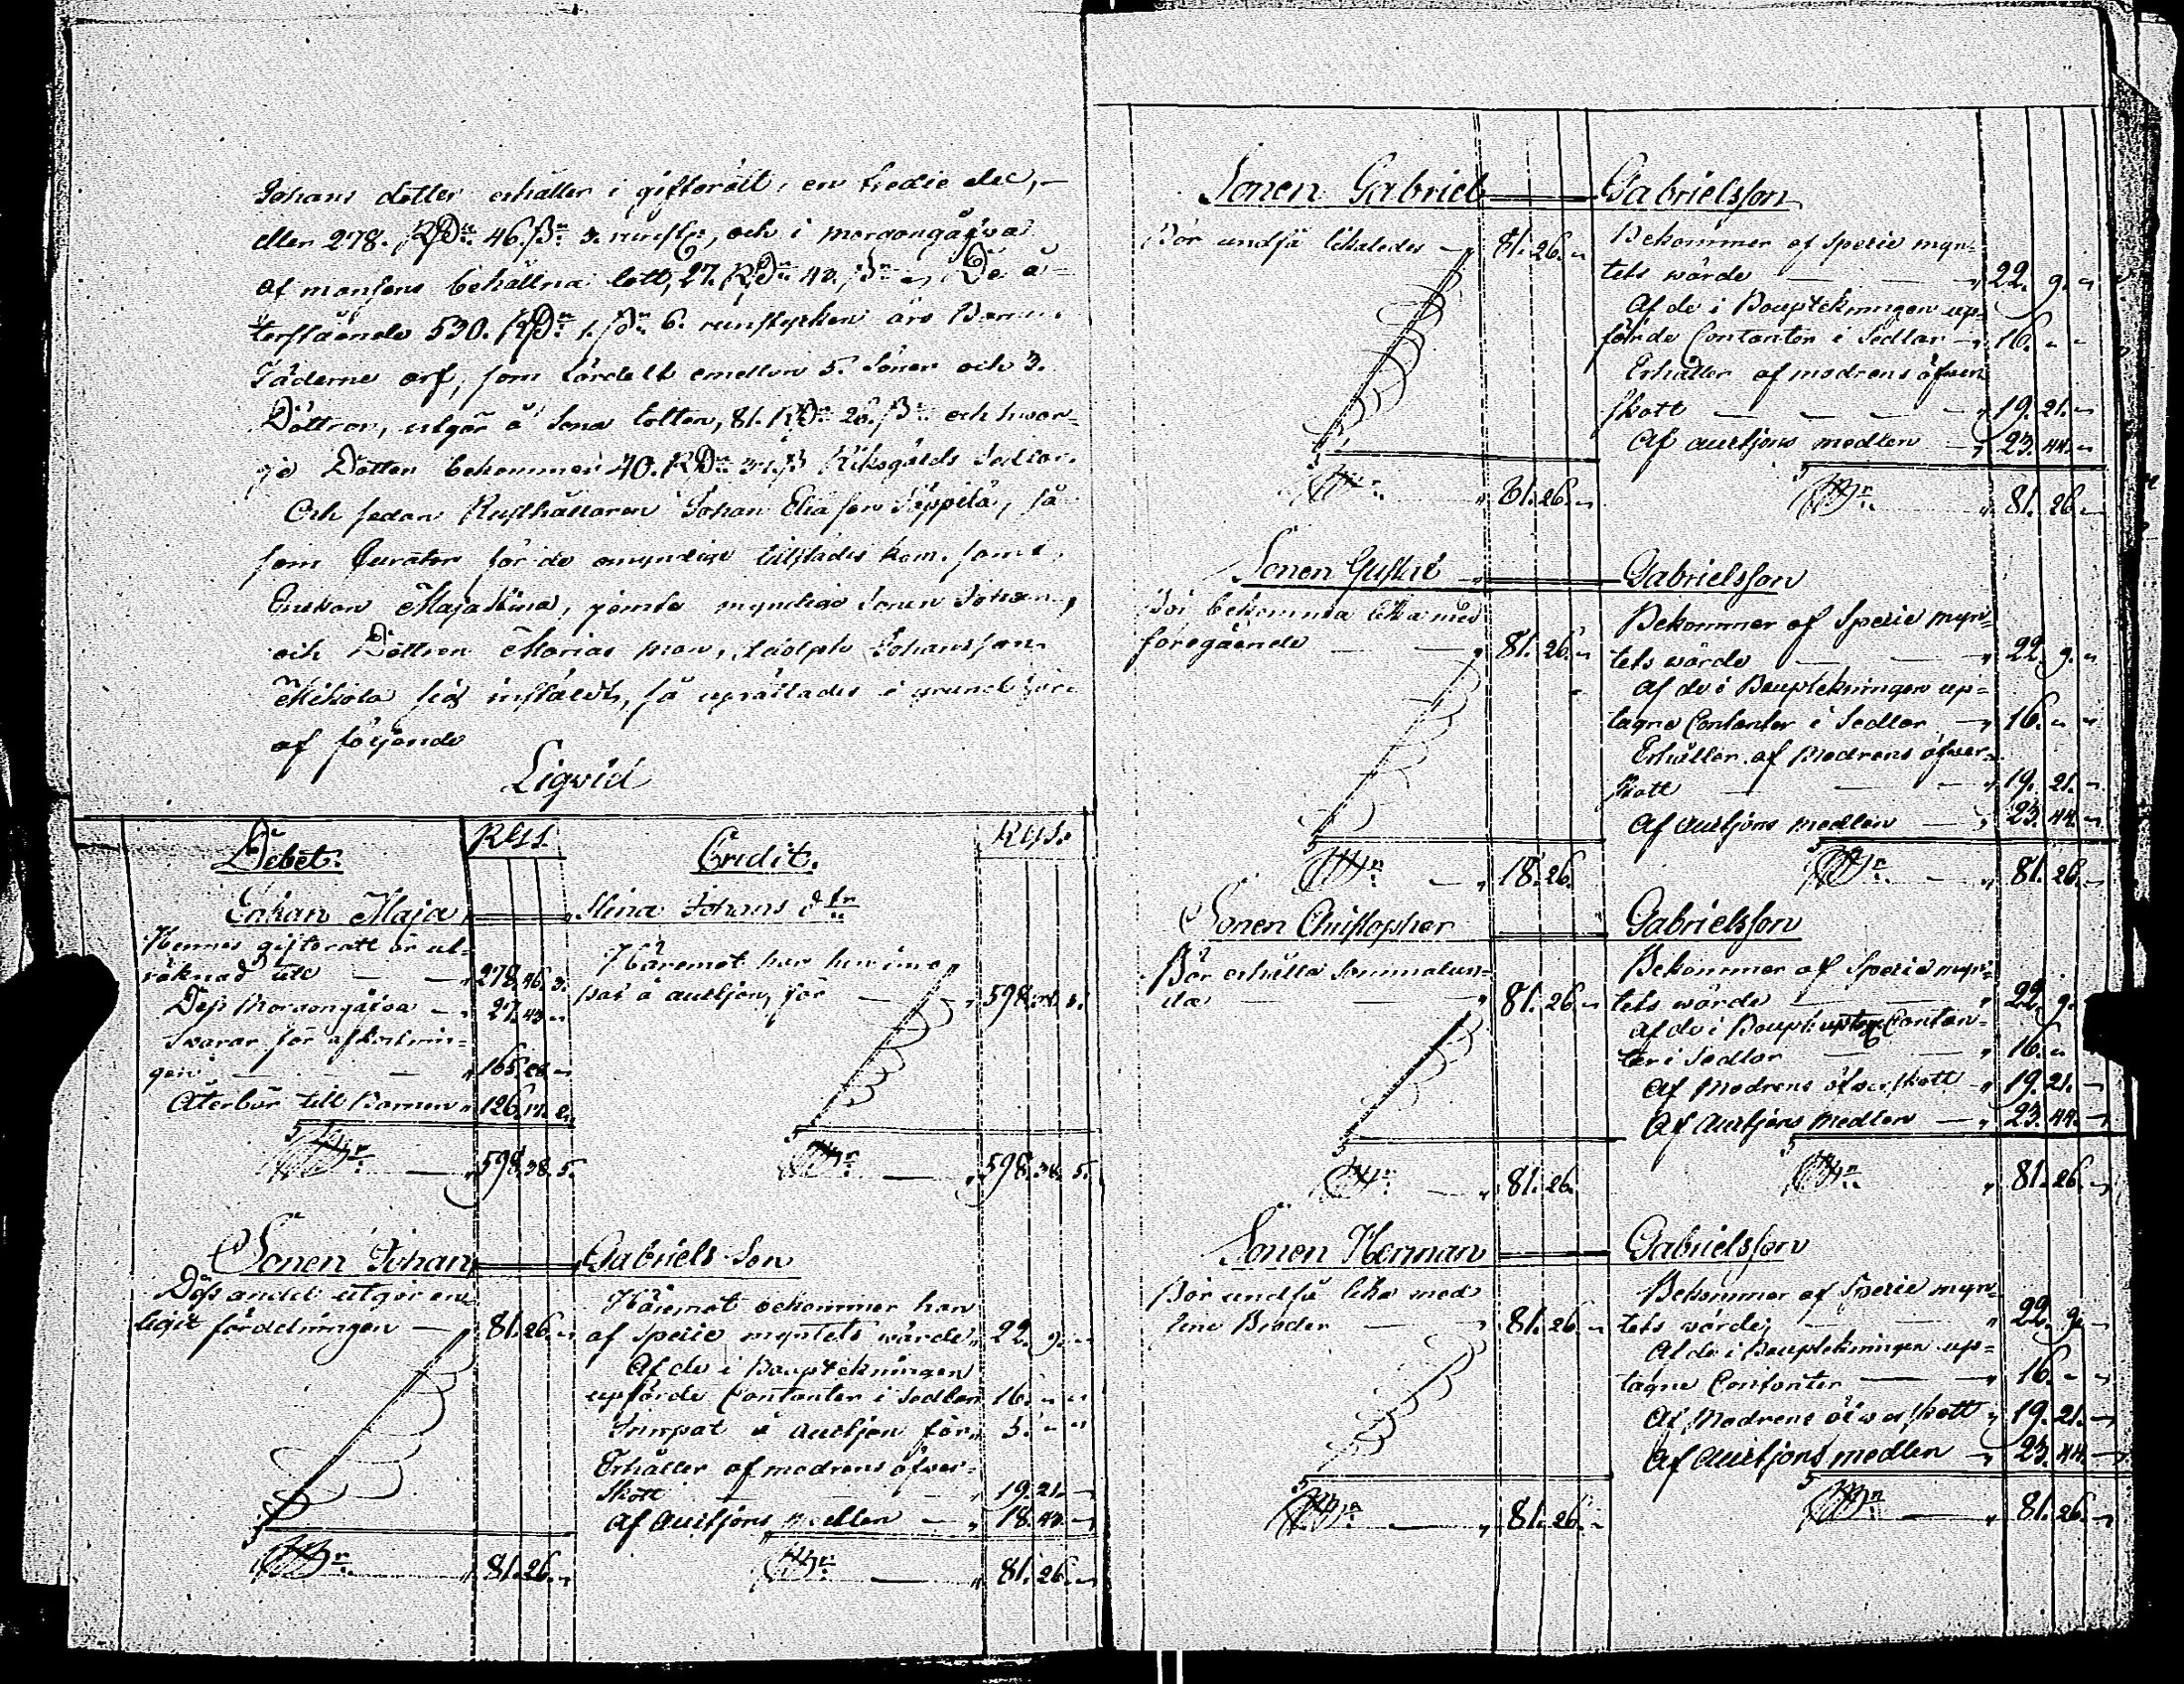 Johans dotter erhåller i giftorätt, en tredie del,
eller 278. RDr 46. sr 3. runst, och i morgongåfva
af mansens behållna lott, 27. RDr 43. sr De å=
terstående 530. RDr 1. sr 6. runstycken äro Barnens
Fäderne arf, som fördelt emellan 5. Söner och 3.
Döttrar, utgör å Sona lotten, 81. RDr 26. sr och hwar=
je Dotter bekommer 40. RDr 37. s Riksgälds Sedlar.
Och sedan Rusthållaren Johan Eliasson Seppilä, så
som Curator för de omyndige tillstädes kom, samt,
Enkan Maja Stina, jemte myndige Sonen Johan,
och Dottren Marias man, Adolph Johansson
Mikola sig inställdt, så uprättades i grund
af följande
Liqvid
Debet.
RGS.
Credit.
RGS.
Enkan Maja Stina Johans dtr
Hennes giftorätt är ut=
räknad till 278. 46. 3.
Dess Morgongåfva 27. 43.
Svarar för afkortnin=
gen 165.
Återbär till Barnen 126.
598. 38. 5.
Häremot har hun inro=
pat å auctjon, för 598. 38. 5.
598. 38. 5.
Sonen Johan Gabriels Son
Dess andel utgör en=
ligit fördelningen 81. 26.
81. 26.
Häremot bekommer han
af Specie myntets wärde 22. 9.
Af de i Bouptekningen
upförde Contanter i Sedlar 16.
Inropat å auctjon för 5.
Erhåller af modrens öfver=
skott 19. 21.
Af Auctjons medlen 18. 44.
81. 26.
Sonen Gabriel Gabrielsson
Bör undfå likaledes 81. 26.
81. 26.
Bekommer af Specie myn=
tets wärde 22. 9.
Af de i Bouptekningen up=
förde Contanter i Sedlar 16.
Erhåller af modrens öfver
skott 19. 21.
Af auctjons medlen 23. 44.
81. 26.
Sonen Gustaf Gabrielsson
Bör bekomma lika med
föregående 81. 26.
18. 26.
Bekommer af Specie myn=
tets wärde 22. 9.
Af de i Bouptekningen up=
tagne Contanter i Sedlar 16.
Erhåller af Modrens öfwer=
skott 19. 21.
Af Auctjons medlen 23. 44.
81. 26.
Sonen Christopher Gabrielsson
Bör erhålla sammalun=
da 81. 26.
81. 26.
Bekommer af Specie myn=
tets wärde 22. 9.
Af de i Boupt: uptagne Contan=
ter i Sedlar 16.
Af Modrens öfverskott 19. 21.
Af Auctjons Medlen 23. 44.
81. 26.
Sonen Herman Gabrielsson
Bör undfå lika med
sine Bröder 81. 26.
81. 26.
Bekommer af Specie myn=
tets wärde 22. 9.
Af de i Bouptekningen up=
tagne Contanter 16.
Af Modrens öfverskott 19. 21.
Af Auctjons medlen 23. 44.
81. 26.